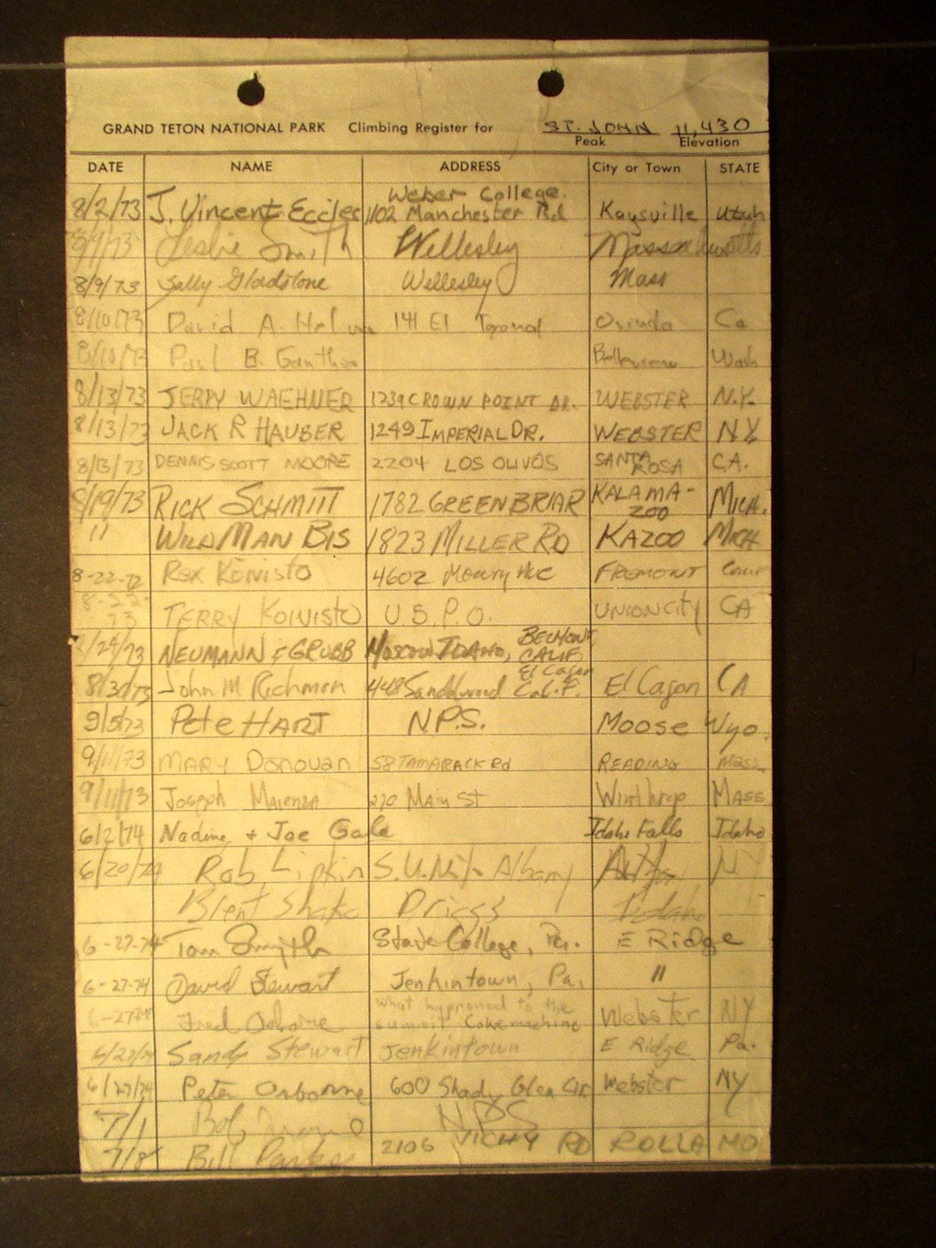 GRAND TETON NATIONAL PARK Climbing Register for ST. JOHN 11,430
Peak Elevation
DATE NAME ADDRESS City or Town STATE
Weber College
8/2/73 J. Vincent Eccles 1102 Manchester Rd Kaysville Utah
8/9/73 Leslie Smith Wellesley Massachusetts
8/9/73 Sally Gladstone Wellesley Mass
8/10/73 David A. 141 El Orinda Ca
8/10/73 Paul B. Wash
8/13/73 JERRY WAEHNER 1239 CROWN POINT DR. WEBSTER N.Y.
8/13/73 JACK R HAUBER 1249 IMPERIAL DR. WEBSTER NY
8/13/73 DENNIS SCOTT MOORE 2204 LOS OLIVOS SANTA ROSA CA.
8/19/73 RICK SCHMITT 1782 GREENBRIAR KALAMA-
ZOO MICH.
11 WILDMAN BIS 1823 MILLER RD KAZOO MICH
8-22-72 Rex Koivisto 4602 Mowry Ave FREMONT Calif
8-22-
73 TERRY KOIVISTO U.S.P.O. UNION CITY CA
BELMONT,
/25/73 NEUMANN & GRUBB MOSCOW IDAHO, CALIF.
El Cajon
8/30/73 John M Richmon 448 Sandalwood Calif. El Cajon CA
9/5/73 Pete HART N.P.S. MOOSE Wyo.
9/11/73 MARY DONOVAN 58 TAMARACK Rd READING Mass.
9/11/73 Joseph 270 Main St Winthrop MASS
6/2/74 Nadine + Joe Gale Idaho Falls Idaho
6/20/74 Rob Lipkin S.U.N.Y. Albany NY
Brent Driggs Idaho
6-27-74 Tom Smyth State College, Pa. E Ridge
6-27-74 David Stewart Jenkintown, Pa, "
what happened to the
6-27-74 Osborne summit Coke machine Webster NY
6/27/74 Sandy Stewart Jenkintown E Ridge Pa.
6/27/74 Peter Osborne 600 Shady Glen Cir Webster NY
7/1 Bob NPS
7/8 Bill Parker 2106 VICHY RD ROLLA MO